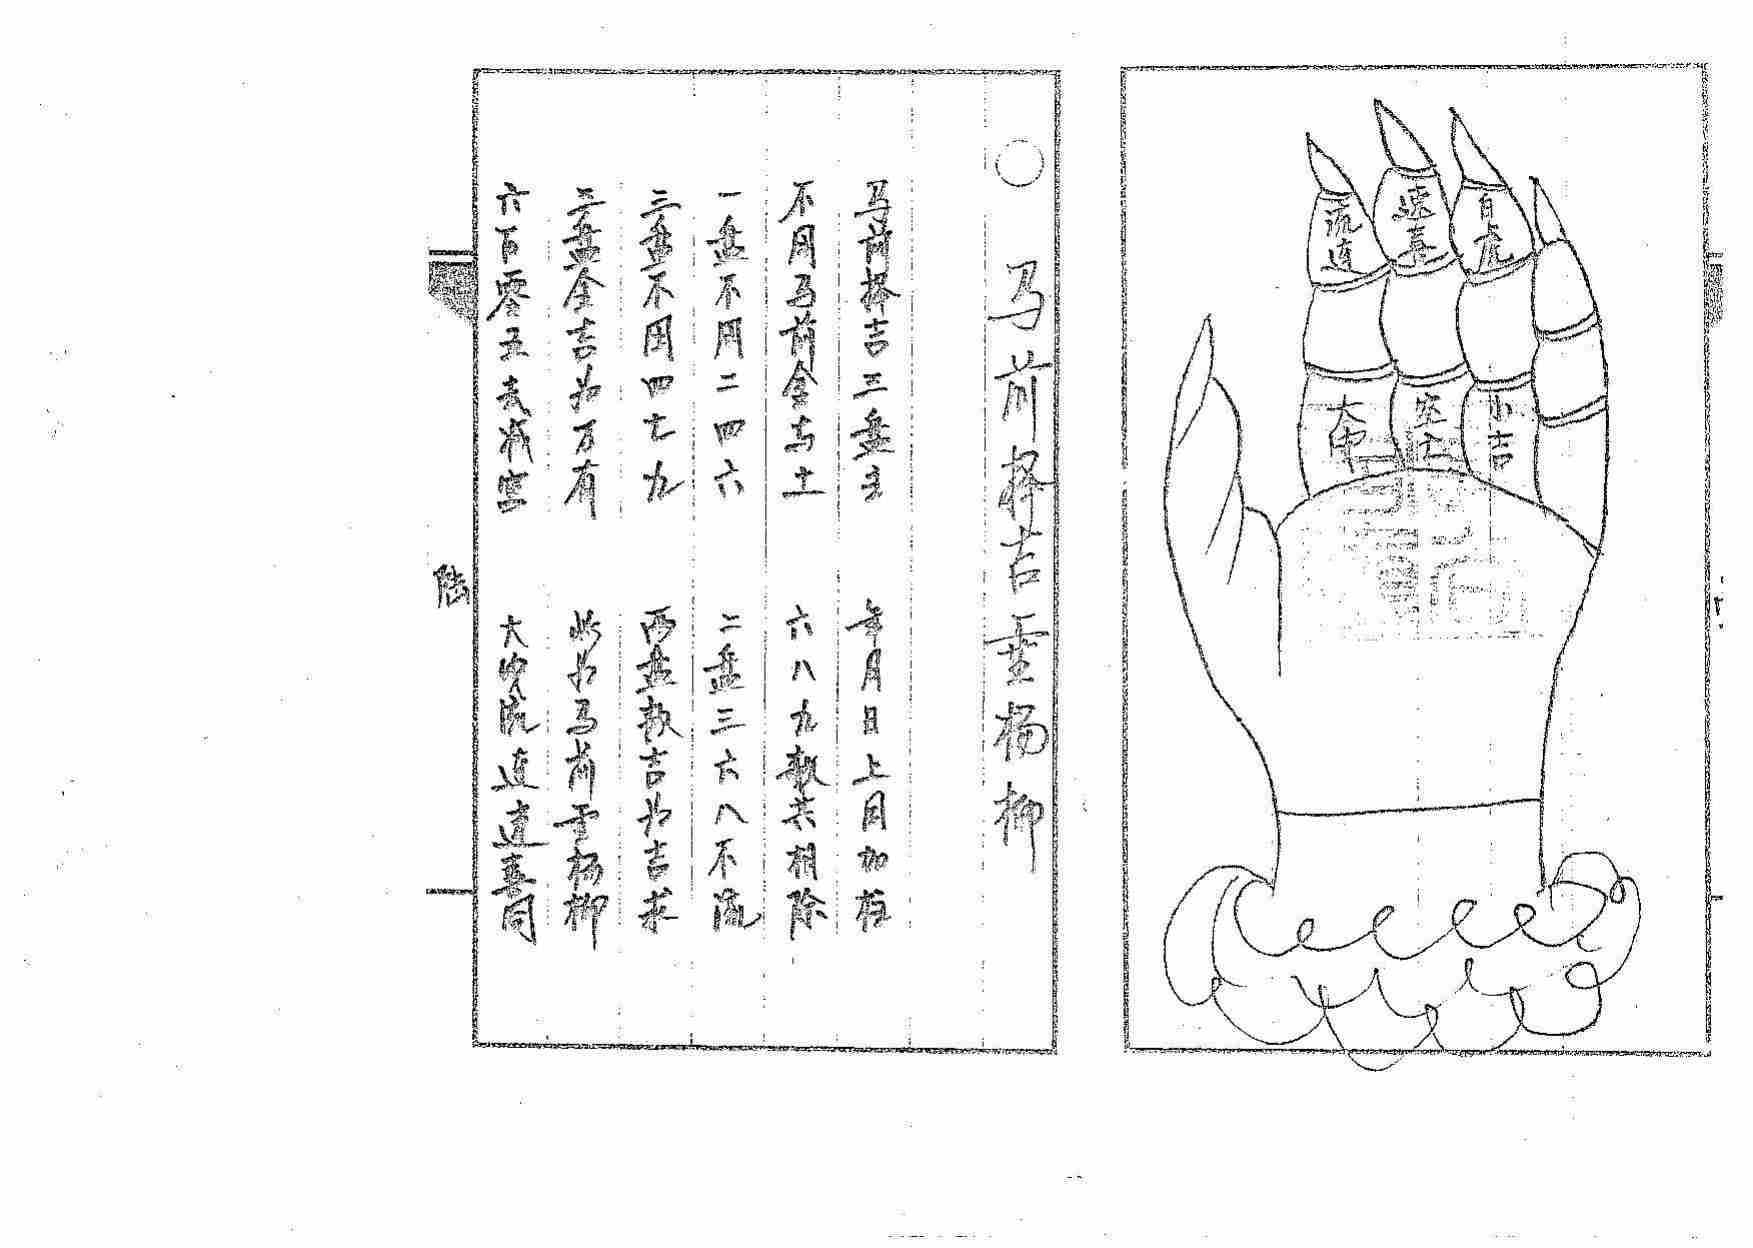 流连
速喜
白虎
大中
空亡
小吉
马前择吉金杨柳
马前择吉三盘主 年月日上同加
不用马前金与土 六八九数共相除
一盘不用二四六 二盘三六八不流
三盘不用四七九 两盘数吉为吉求
三盘全吉为万有 此为马前金杨柳
六百零五去减空 大安流连速喜同
陆